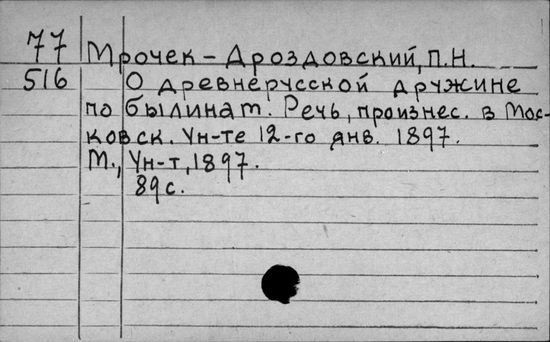 77 Мрочек-Дроздовский, П.Н.
516 О древнерусской дружине
по былинам. Речь, произнес. в Мос-
ковск. Ун-те 12-го янв. 1897.
М., Ун-т, 1897.
89с.